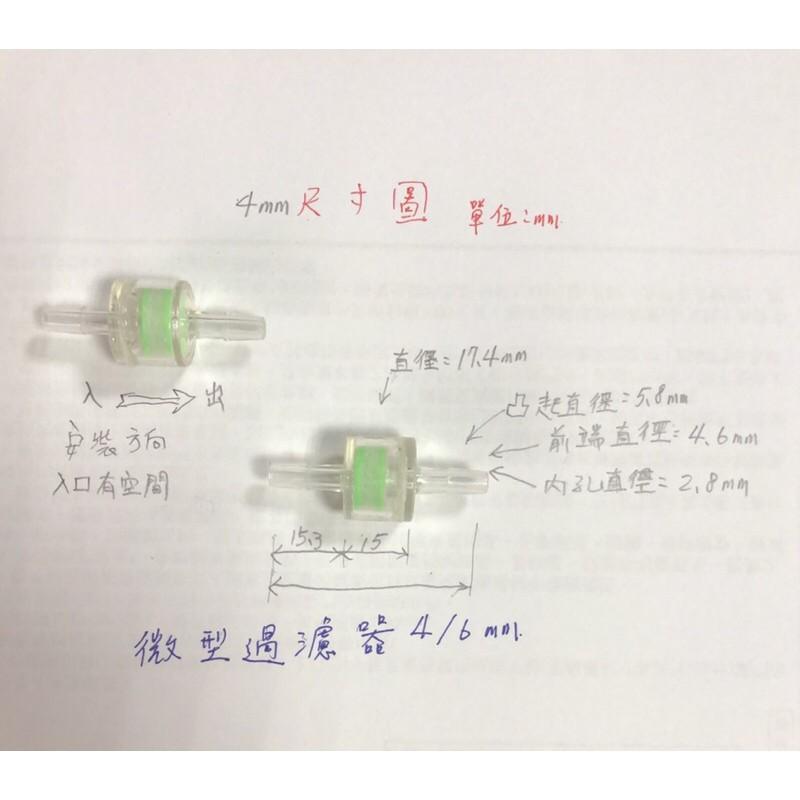 4mm 尺寸圖 單位:mm.
直徑=17.4mm
入 出
安裝方向
入口有空間
凸起直徑=5.8mm
前端直徑=4.6mm
內孔直徑=2.8mm
15.3 15
微型過濾器 4/6mm.